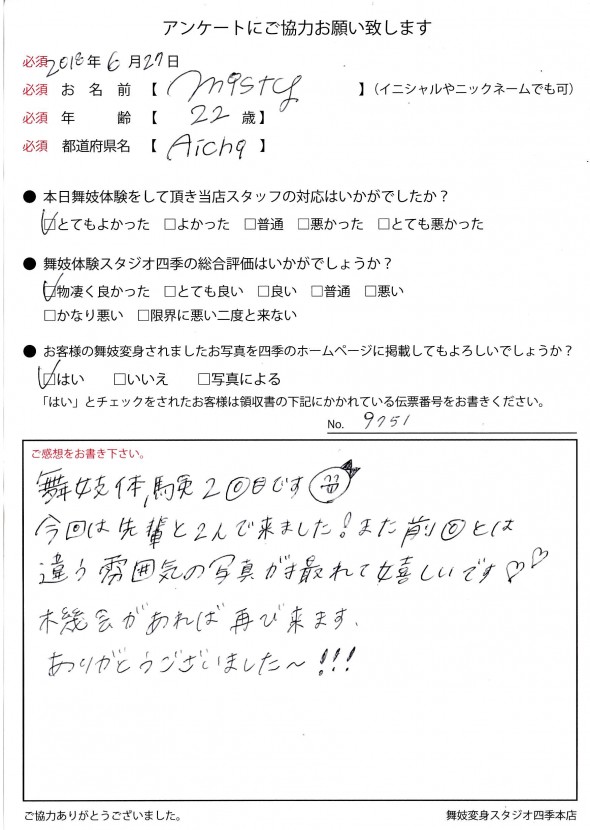 アンケートにご協力お願い致します
必須 2018年 6月27日
必須 お名前 【 misty 】（イニシャルやニックネームでも可）
必須 年齢 【 22 歳】
必須 都道府県名 【 Aichi 】
● 本日舞妓体験をして頂き当店スタッフの対応はいかがでしたか？
□とてもよかった □よかった □普通 □悪かった □とても悪かった
● 舞妓体験スタジオ四季の総合評価はいかがでしょうか？
□物凄く良かった □とても良い □良い □普通 □悪い
□かなり悪い □限界に悪い二度と来ない
● お客様の舞妓変身されましたお写真を四季のホームページに掲載してもよろしいでしょうか？
□はい □いいえ □写真による
「はい」とチェックをされたお客様は領収書の下記にかかれている伝票番号をお書きください。
No. 9751
ご感想をお書き下さい。
舞妓体験2回目です
今回は先輩と2人で来ました！また前回とは
違う雰囲気の写真が撮れて嬉しいです♡♡
機会があれば再び来ます.
ありがとうございました〜!!!
ご協力ありがとうございました。
舞妓変身スタジオ四季本店